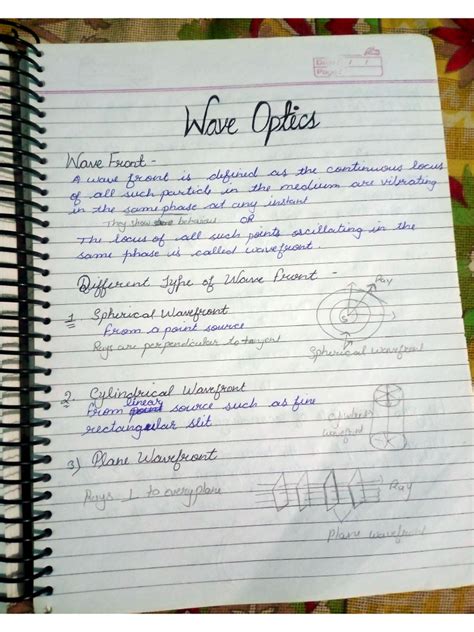 Date: / /
Page:
Wave Optics
Wave Front -
A wave front is defined as the continuous locus
of all such particls in the medium are vibrating
in the same phase at any instant
They show same behaviour OR
The locus of all such points oscillating in the
same phase is called wavefront
Different Type of Wave Front -
1. Spherical Wavefront
From a point source
Rays are perpendicular to tangent
Ray
S
Spherical wavefront
2. Cylindrical Wavefront
From linear source such as fine
rectangular slit
wavefront
3) Plane Wavefront
Rays ⊥ to every plane
Ray
Plane wavefront